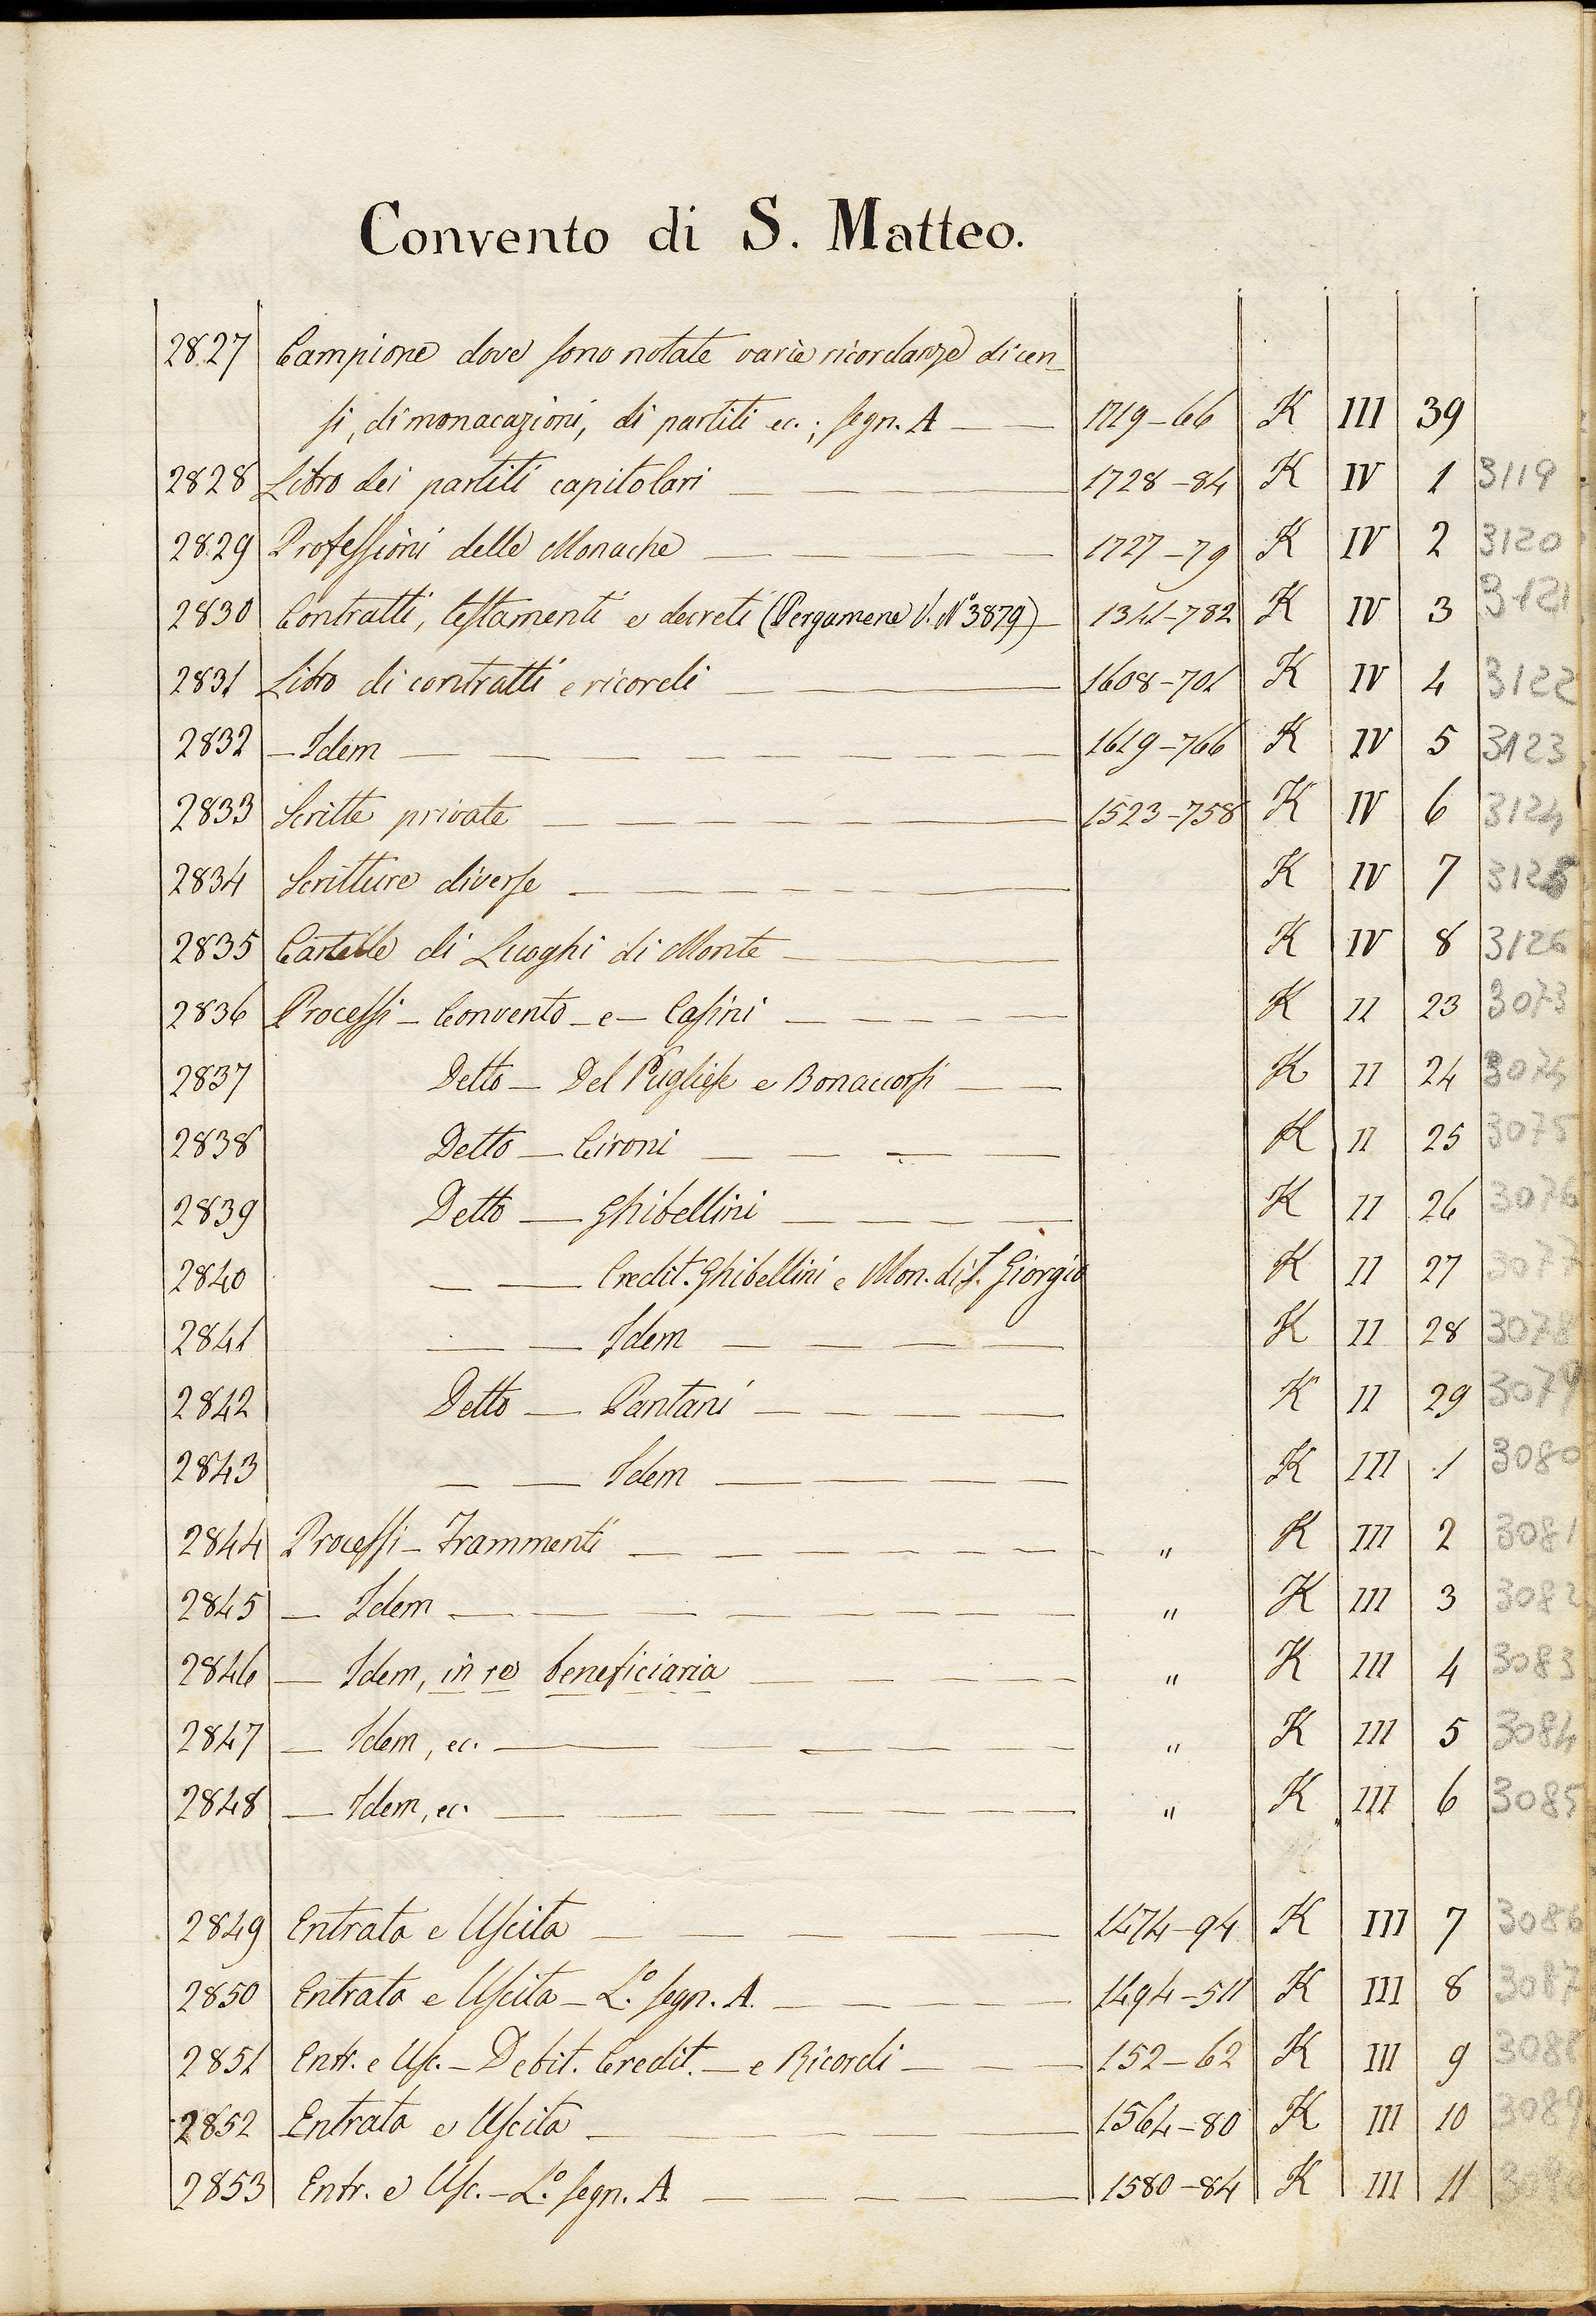 Convento di S. Matteo.
2827 Campione dove sono notate varie ricordanze di cen-
si, di monacazioni, di partiti ec.; segn. A — — 1719-66 K III 39
2828 Libro dei partiti capitolari — — — — 1728-84 K IV 1 3119
2829 Professioni delle Monache — — — — 1727-79 K IV 2 3120
2830 Contratti, testamenti e decreti (Pergamene V. N° 3879) — 1341-782 K IV 3 3121
2831 Libro di contratti e ricordi — — — — 1608-701 K IV 4 3122
2832 — Idem — — — — — — 1619-766 K IV 5 3123
2833 Scritte private — — — — — 1523-758 K IV 6 3124
2834 Scritture diverse — — — — — K IV 7 3125
2835 Cartelle di Luoghi di Monte — — — K IV 8 3126
2836 Processi — Convento — e — Casini — — — — K II 23 3073
2837 Detto — Del Pugliese e Bonaccorsi — — K II 24 3074
2838 Detto — Cironi — — — — K II 25 3075
2839 Detto — Ghibellini — — — — K II 26 3076
2840 — — Credit. Ghibellini e Mon. di S. Giorgio K II 27 3077
2841 — — Idem — — — — K II 28 3078
2842 Detto — Pantani — — — — K II 29 3079
2843 — — Idem — — — — K III 1 3080
2844 Processi — Frammenti — — — — — — " K III 2 3081
2845 — Idem — — — — — — " K III 3 3082
2846 — Idem, in re beneficiaria — — — — " K III 4 3083
2847 — Idem, ec. — — — — — " K III 5 3084
2848 — Idem, ec. — — — — — " K III 6 3085
2849 Entrata e Uscita — — — — — 1474-94 K III 7 3086
2850 Entrata e Uscita — L.° segn. A. — — — — 1494-511 K III 8 3087
2851 Entr. e Usc. — Debit. Credit. — e Ricordi — — — 152-62 K III 9 3088
2852 Entrata e Uscita — — — — — 1564-80 K III 10 3089
2853 Entr. e Usc. — L.° segn. A — — — — 1580-84 K III 11 3090